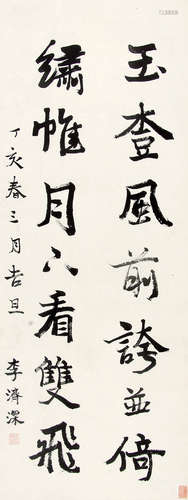 玉臺風前誇並倚
繡帷月下看雙飛
丁亥春三月吉旦
李濟深